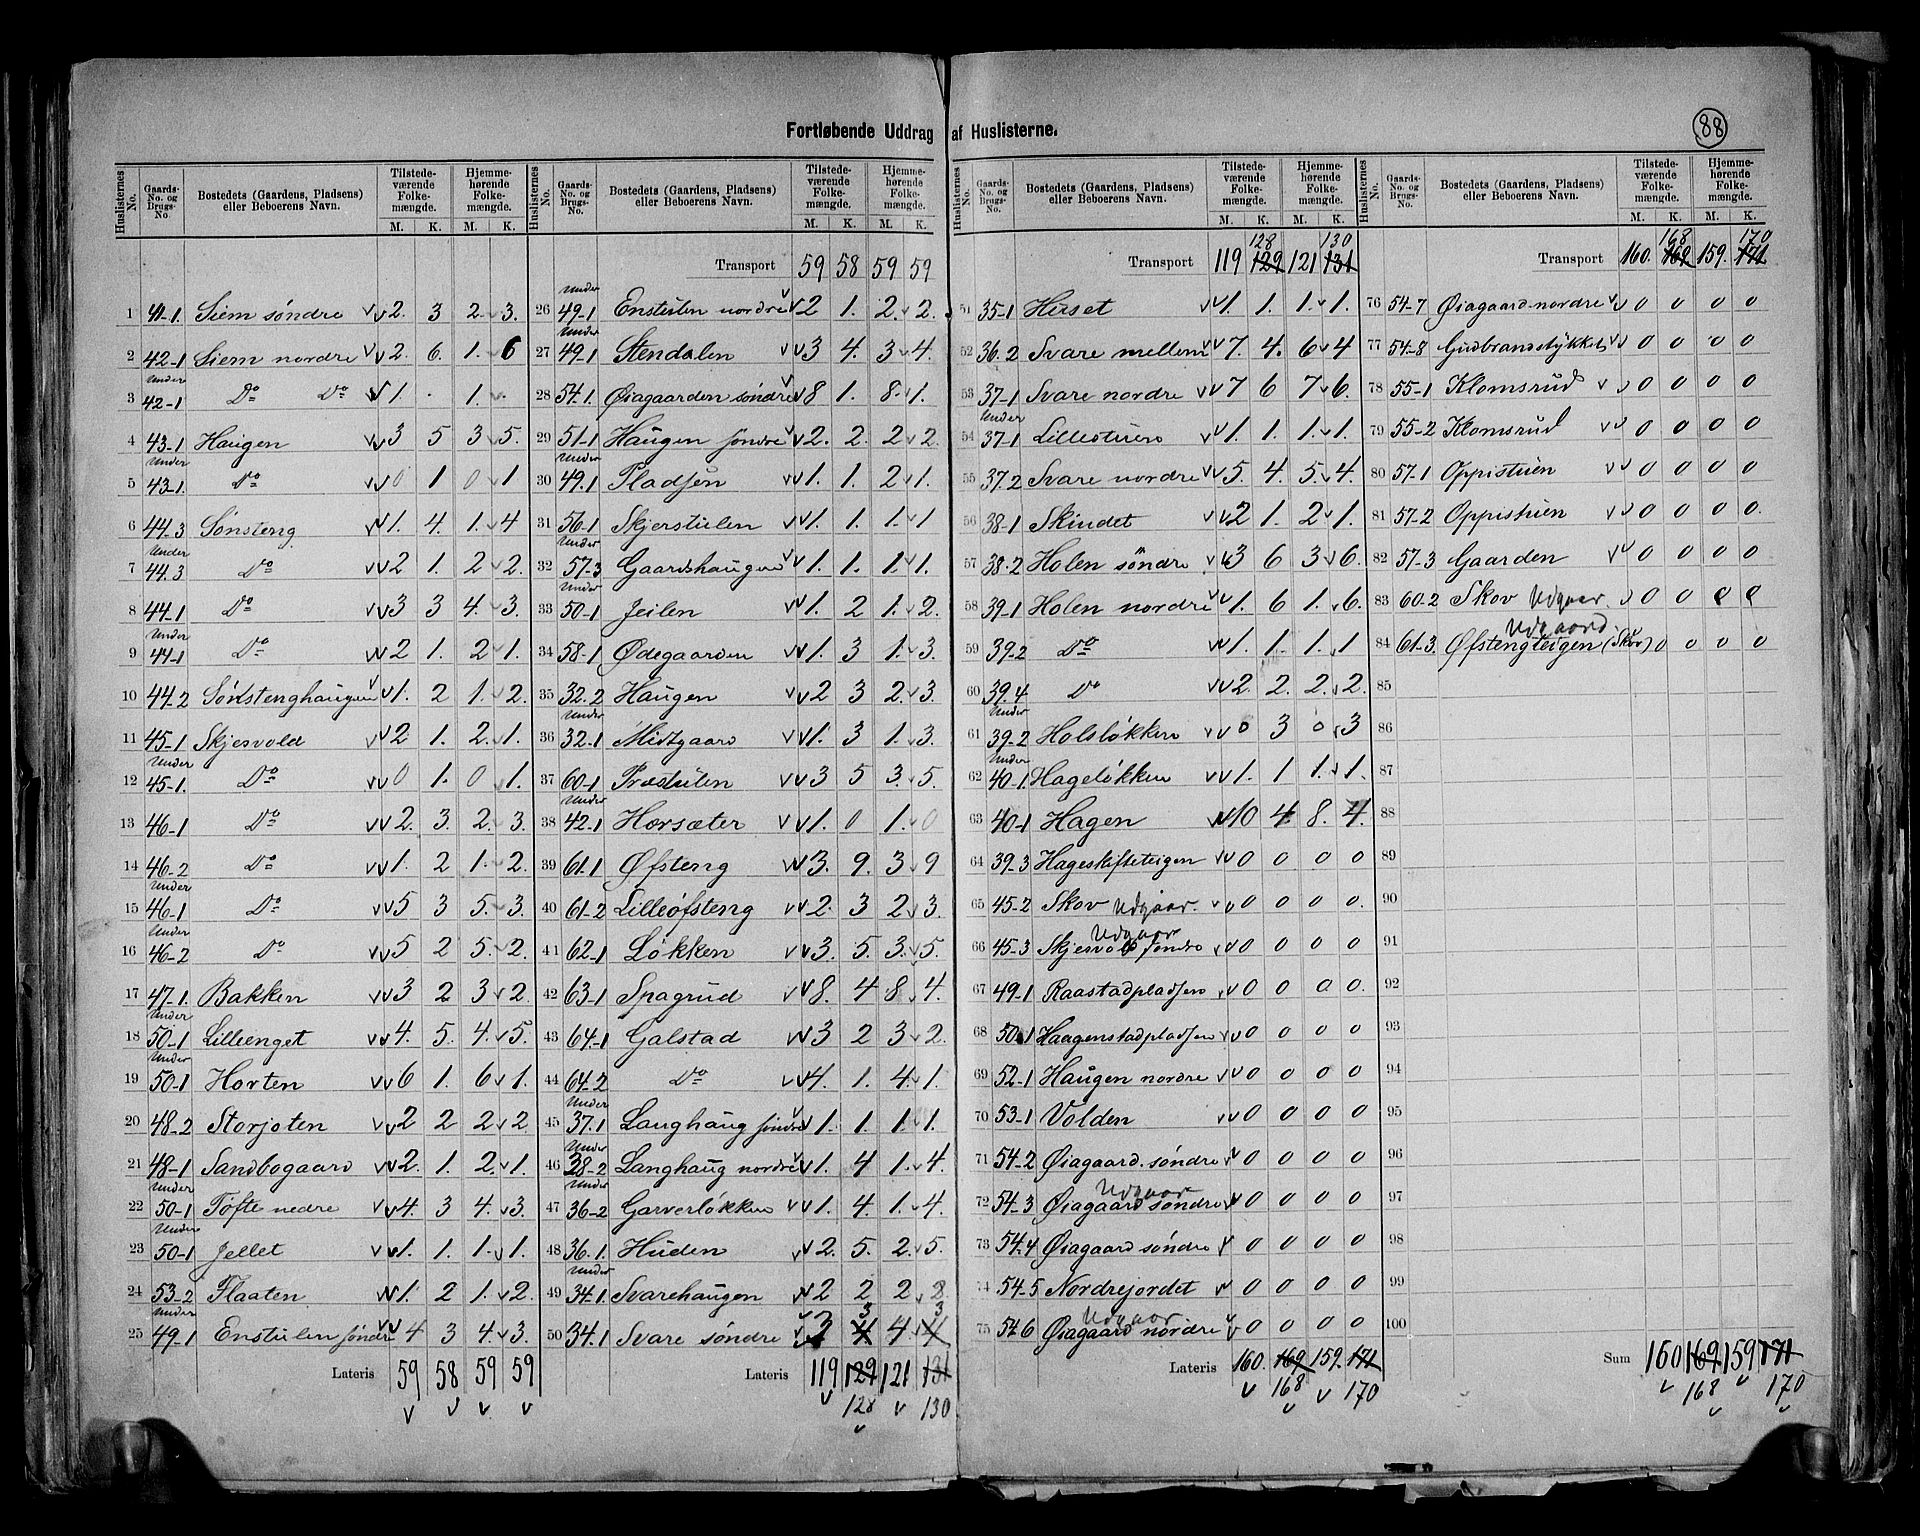 88
Fortløbende Uddrag af Huslisterne.
Huslisternes No. | Gaards-No. og Brugs-No. | Bostedets (Gaardens, Pladsens) eller Beboerens Navn. | Tilstedeværende Folkemængde. M. K. | Hjemmehørende Folkemængde. M. K.
1 41-1. Siem søndre 2. 3 2. 3.
2 42-1 Siem nordre 2. 6. 1. 6
3 Under 42-1 Do Do 1. . 1. .
4 43-1 Haugen 3 5 3 5.
5 Under 43-1. Do 0 1 0 1
6 44-3 Sønsteng 1. 4. 1. 4
7 Under 44-3 Do 2 1. 2 2.
8 44-1 Do 3 3 4. 3.
9 Under 44-1 Do 2 1. 2 1.
10 44-2 Sønstenghaugen 1. 2 1. 2.
11 45-1 Skjesvold 2 1. 2. 1.
12 Under 45-1. Do 0 1. 0 1.
13 46-1 Do 2. 3. 2. 3.
14 46-2 Do 1. 2 1. 2.
15 Under 46-1 Do 5 3 5. 3.
16 Under 46-2 Do 5 2 5. 2.
17 47-1. Bakken 3 2 3 2.
18 Under 50-1 Lillienget 4. 5 4. 5.
19 Under 50-1 Horten 6 1. 6 1.
20 48-2 Storjoten 2 2 2 2.
21 48-1 Sandbogaard 2. 1. 2. 1.
22 Under 50-1 Tofte nedre 4. 3 4. 3.
23 Under 50-1 Jellet 1. 1. 1. 1.
24 53-2 Flaaten 1. 2 1. 2.
25 Under 49-1 Enstulen søndre 4 3 4. 3.
Lateris 59 58 59 59
Transport 59 58 59 59
26 Under 49-1 Enstulen nordre 2 1. 2. 2.
27 Under 49.1 Stendalen 3 4. 3 4.
28 54.1. Øiagaarden søndre 8 1. 8. 1.
29 51-1 Haugen søndre 2. 2. 2 2.
30 Under 49.1 Pladsen 1. 1. 2 1.
31 56-1 Skjerstulen 1. 1. 1. 1
32 Under 57-3 Gaardshaugen 1. 1. 1. 1.
33 Under 50-1 Jeilen 1. 2 1. 2.
34 58-1 Ødegaarden 1. 3 1. 3.
35 32.2 Haugen 2 3 2. 3.
36 Under 32.1 Midtgaard 1. 3 1. 3.
37 60-1 Præstulen 3 5 3. 5.
38 Under 42-1 Horsæter 1. 0 1. 0
39 61-1 Øfsteng 3. 9. 3 9
40 61-2 Lilleøfsteng 2. 3 2 3.
41 62-1 Løkken 3. 5. 3. 5.
42 63-1 Spagrud 8. 4 8 4.
43 64-1 Galstad 3 2 3 2.
44 64-2 Do 4. 1. 4. 1.
45 Under 37.1 Langhaug søndre 1. 1. 1. 1.
46 Under 28-2 Langhaug nordre 1. 4 1. 4.
47 Under 36-2 Garverløkken 1. 4. 1. 4.
48 36.1. Huden 2. 5. 2. 5.
49 Under 34-1. Svarehaugen 2 2 2 2.
50 34.1 Svare søndre 3 4 3 4 4 3
Lateris 119 129 121 131
128 130
Transport 119 129 121 131
128 130
51 35-1 Hirset 1. 1. 1. 1.
52 36.2 Svare mellem 7. 4. 6 4
53 37-1 Svare nordre 7 6 7 6.
54 Under 37-1 Lillestuen 1. 1. 1. 1.
55 37.2 Svare nordre 5. 4. 5. 4.
56 38-1 Skindet 2 1. 2 1.
57 38.2 Holen søndre 3 6 3 6.
58 39-1 Holen nordre 1. 6 1. 6.
59 39-2 Do 1. 1. 1. 1
60 39.4 Do 2. 2. 2. 2.
61 Under 39-2 Holsløkken 0 3 0 3
62 Under 40-1. Hageløkken 1. 1 1. 1.
63 40-1 Hagen 10 4 8. 4.
64 39-3 Hageskifteteigen 0 0 0 0
65 45-2 Skov Udgaar. 0 0 0 0.
66 45-3 Skjesvold søndre Udgaar 0 0 0 0
67 49-1 Raastadpladsen 0 0 0 0.
68 50-1 Haagenstadpladsen 0 0 0 0
69 52-1 Haugen nordre 0 0 0 0
70 53-1 Volden 0 0 0 0
71 54-2 Øiagaard søndre 0 0 0 0
72 54-3 Øiagaard søndre Udgaar 0 0 0 0
73 54-4 Øiagaard søndre 0 0 0 0
74 54-5 Nordrejordet 0 0 0 0
75 54-6 Øiagaard nordre Udgaar 0 0 0 0
Lateris 160. 169 159. 171
168 170
Transport 160. 169 159. 171
168 170
76 54-7 Øiagaard nordre 0 0 0 0
77 54-8 Gudbrandstykket 0 0 0 0
78 55-1 Klomsrud 0 0 0 0
79 55-2 Klomsrud 0 0 0 0
80 57-1 Oppistuen 0 0 0 0
81 57-2 Oppistuen 0 0 0 0.
82 57-3 Gaarden 0 0 0 0
83 60-2 Skov Udgaar. 0 0 0 0
84 61-3. Øfstengteigen (Skov) Udgaard. 0 0 0 0
85
86
87
88
89
90
91
92
93
94
95
96
97
98
99
100
Sum 160 169 159 171
168 170